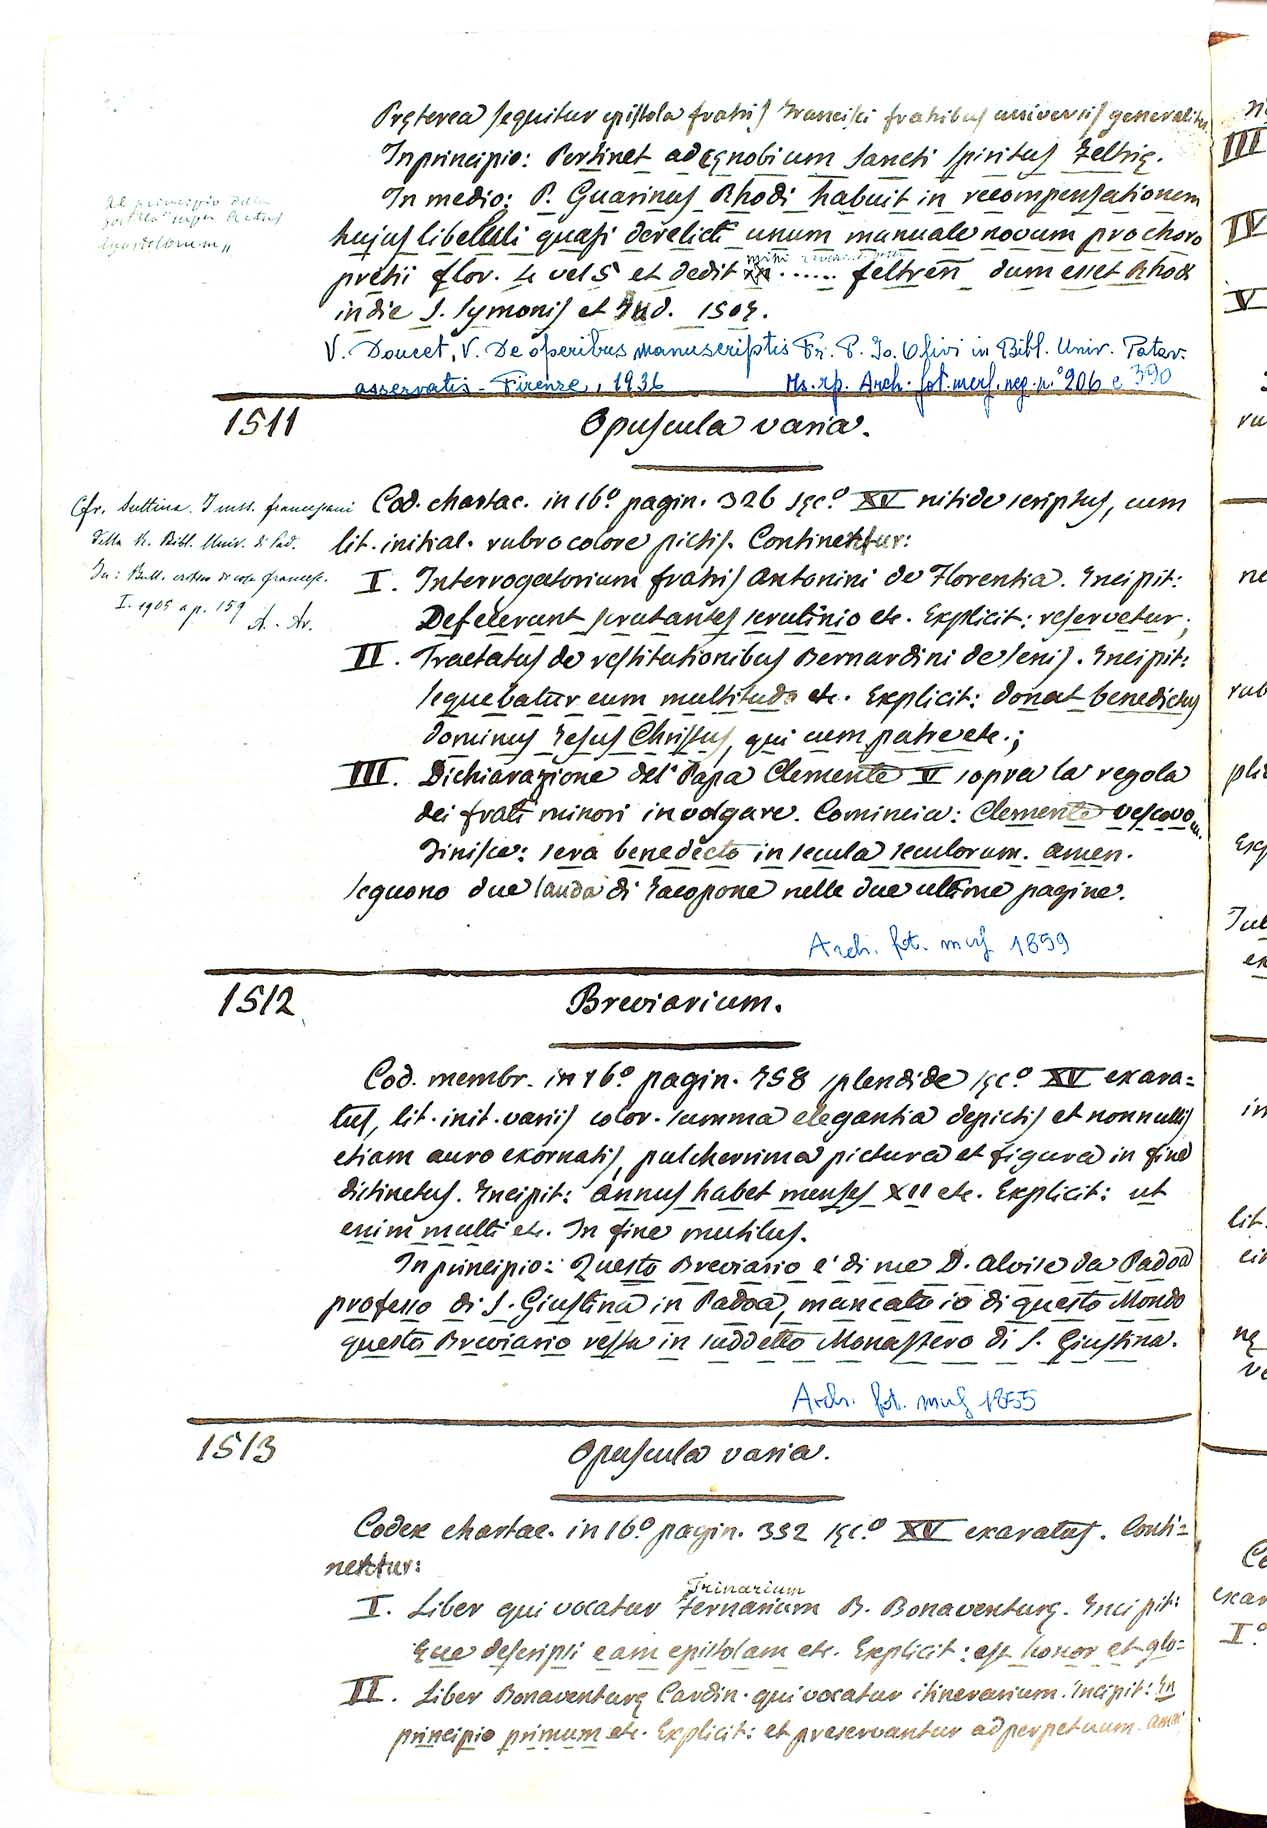 Pręterea sequitur epistola fratris Francisci fratribus universis generaliter
In principio: Pertinet ad cęnobium sancti spiritus Feltrię.
In medio: P. Guarinus Rhodi habuit in recompensationem
hujus libelluli quasi derelicti unum manuale novum pro choro
pretii flor. 4 vel 5 et dedit mihi ...... feltreñ dum esset Rhodi
in die S. Symonis et Jud.
Al principio della
postilla "super Actus
Apostolorum"
V. Doucet, V. De operibus manuscriptis Fr. P. Jo. Olivi in Bibl. Univ. Patav.
asservatis - Firenze, 1936
Ms. rip. Arch. fot. mss. neg. n.° 206 e 390
1511 Opuscula varia.
Cfr. Suttina. I mss. francescani
della R. Bibl. Univ. di Pad.
In: Bull. critico di cose francesc.
I. 1905 a p. 159 A. Ar.
Cod. chartac. in 16° pagin. 326 sęc.° XV nitide scriptus, cum
lit. initial. rubro colore pictis. Continentur:
I. Interrogatorium fratris Antonini de Florentia. Incipit:
Defecerunt scrutantes scrutinio etc. Explicit: reservetur;
II. Tractatus de restitutionibus Bernardini de Senis. Incipit:
sequebatur eum multitudo etc. Explicit: donat benedictus
dominus Jesus Christus, qui cum patre etc.;
III. Dichiarazione del Papa Clemente V sopra la regola
dei frati minori in volgare. Comincia: Clemente vescovo ec.
Finisce: sera benedecto in secula seculorum. amen.
seguono due lauda di Jacopone nelle due ultime pagine.
Arch. fot. mss 1859
1512 Breviarium.
Cod. membr. in 16° pagin. 758 splendide sęc.° XV exara=
tus, lit. init. variis color. summa elegantia depictis et nonnullis
etiam auro exornatis, pulcherrima pictura et figura in fine
distinctus. Incipit: Annus habet menses XII etc. Explicit: ut
enim multi etc. In fine mutilus.
In principio: Questo Breviario e' di me D. Alvise da Padoa
professo di S. Giustina in Padoa, mancato io di questo Mondo
questo Breviario resta in suddetto Monastero di S. Giustina.
Arch. fot. mss 1855
1513 Opuscula varia.
Codex chartac. in 16° pagin. 332 sęc.° XV exaratus. Conti=
nentur:
Trinarium
I. Liber qui vocatur Ternarium B. Bonaventurę. Incipit:
Ecce descripsi eam epistolam etc. Explicit: est honor et glo=
II. Liber Bonaventurę Cardin. qui vocatur itinerarium. Incipit: In
principio primum etc. Explicit: et preservantur ad perpetuum. amen;